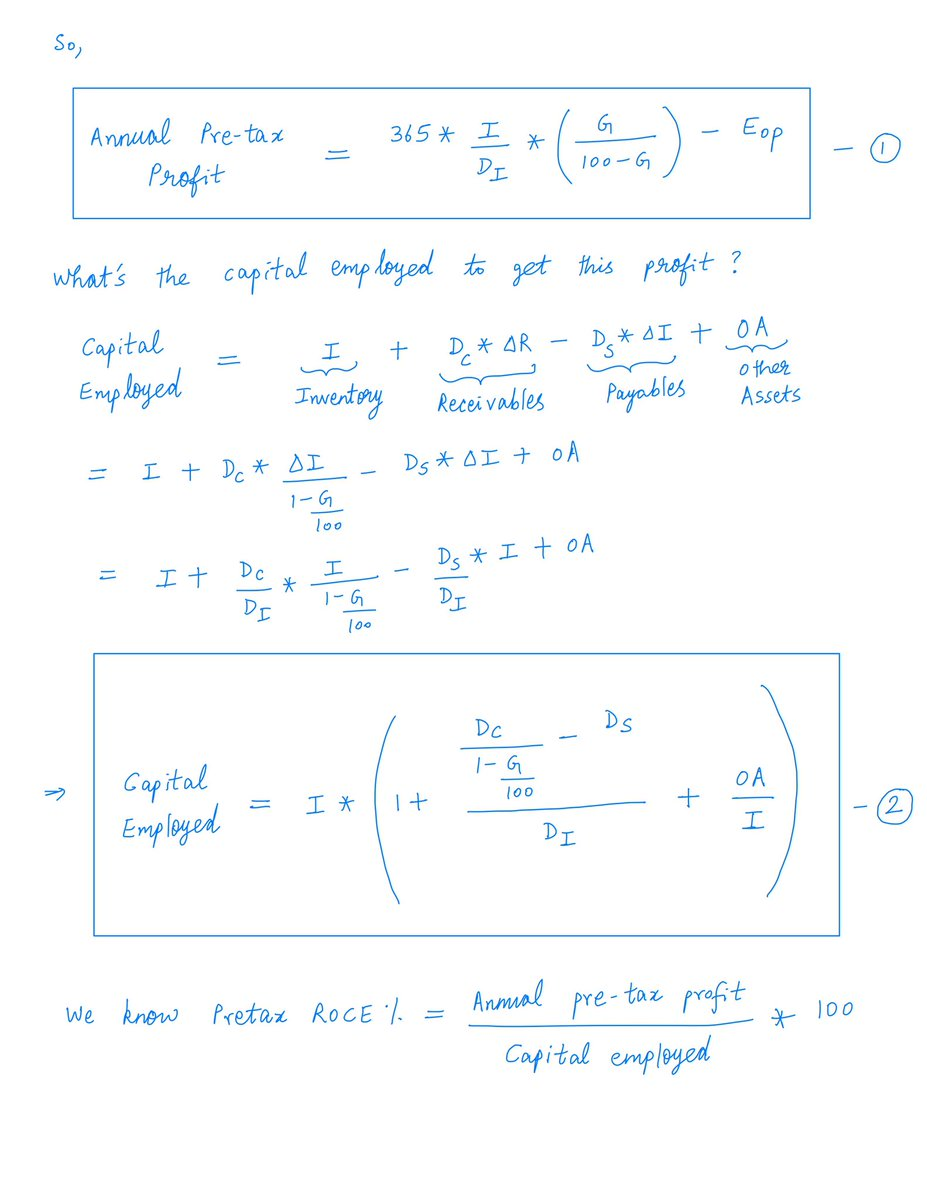 So,
Annual Pre-tax Profit = 365 * I / D_I * ( G / 100 - G ) - E_op - ①
What's the capital employed to get this profit ?
Capital Employed = I + D_C * ΔR - D_S * ΔI + OA
Inventory Receivables Payables Other Assets
= I + D_C * ΔI / (1 - G/100) - D_S * ΔI + OA
= I + D_C / D_I * I / (1 - G/100) - D_S / D_I * I + OA
⇒ Capital Employed = I * ( 1 + ( D_C / (1 - G/100) - D_S ) / D_I + OA / I ) - ②
We know Pretax ROCE % = Annual pre-tax profit / Capital employed * 100